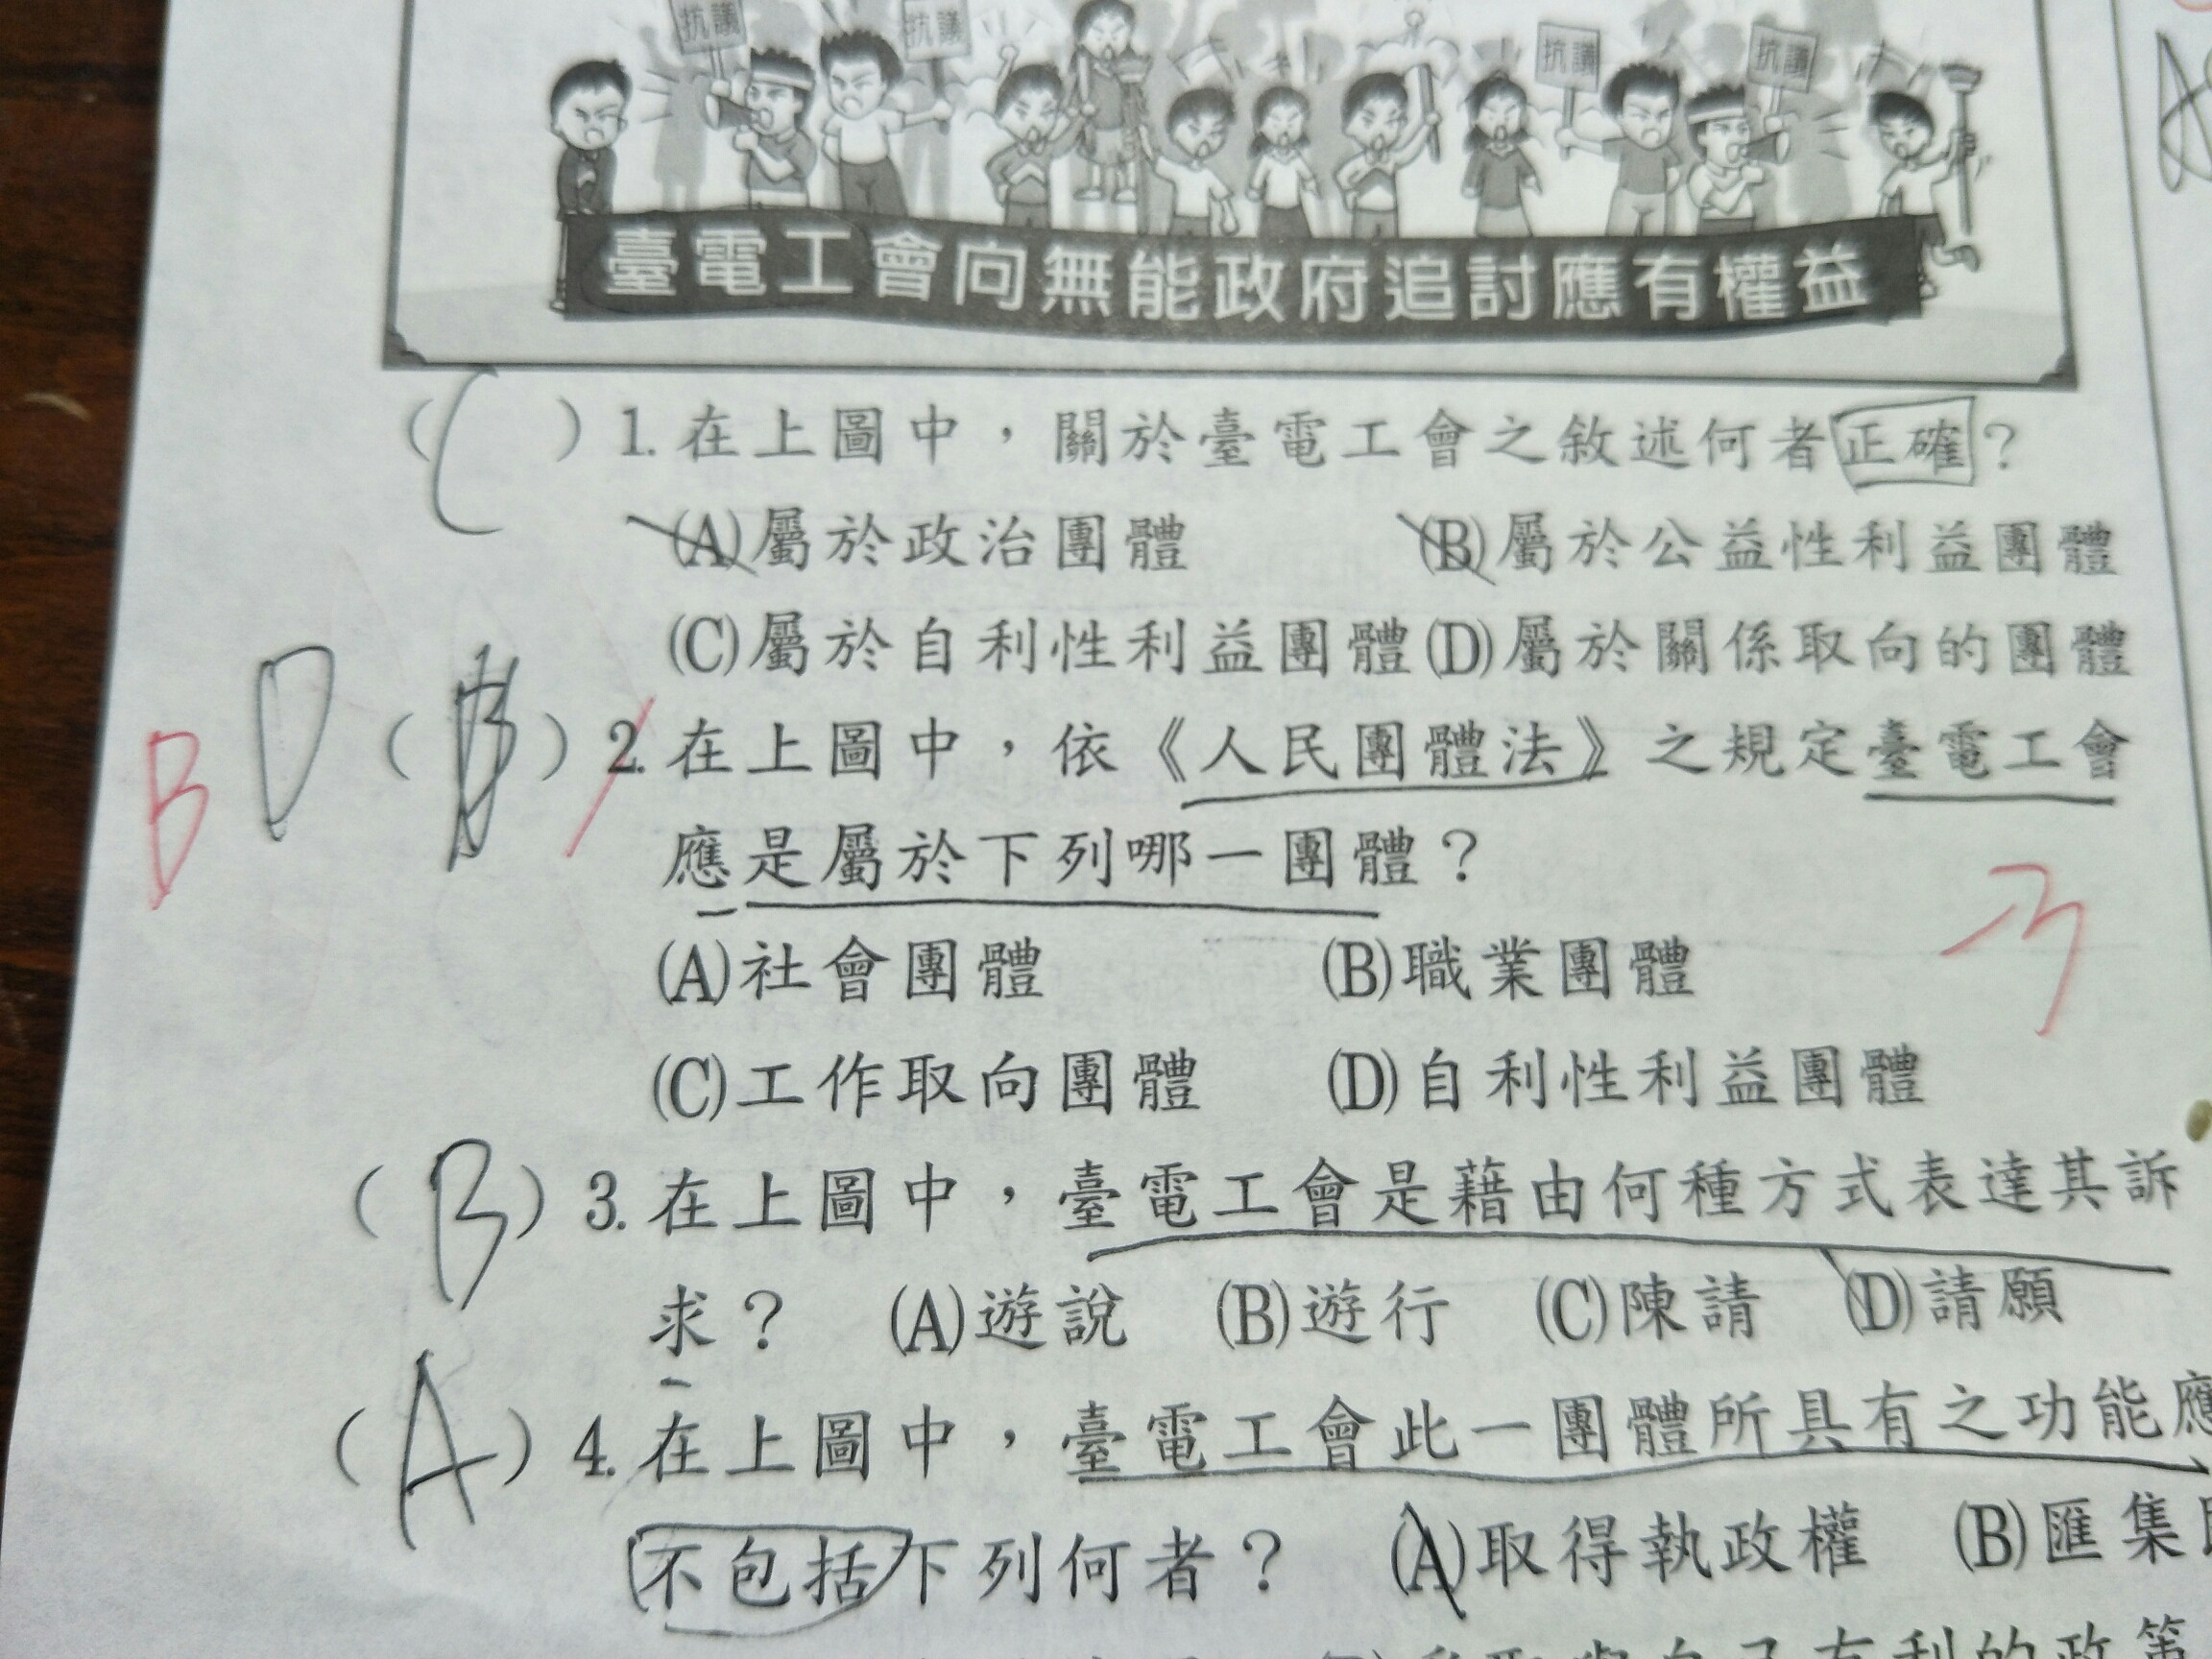 抗議 抗議 抗議 抗議
臺電工會向無能政府追討應有權益
(C) 1. 在上圖中，關於臺電工會之敘述何者正確？
(A)屬於政治團體 (B)屬於公益性利益團體
(C)屬於自利性利益團體 (D)屬於關係取向的團體
B D (B) 2. 在上圖中，依《人民團體法》之規定臺電工會
應是屬於下列哪一團體？
(A)社會團體 (B)職業團體
(C)工作取向團體 (D)自利性利益團體
(B) 3. 在上圖中，臺電工會是藉由何種方式表達其訴
求？ (A)遊說 (B)遊行 (C)陳請 (D)請願
(A) 4. 在上圖中，臺電工會此一團體所具有之功能應
不包括下列何者？ (A)取得執政權 (B)匯集
自己有利的政策